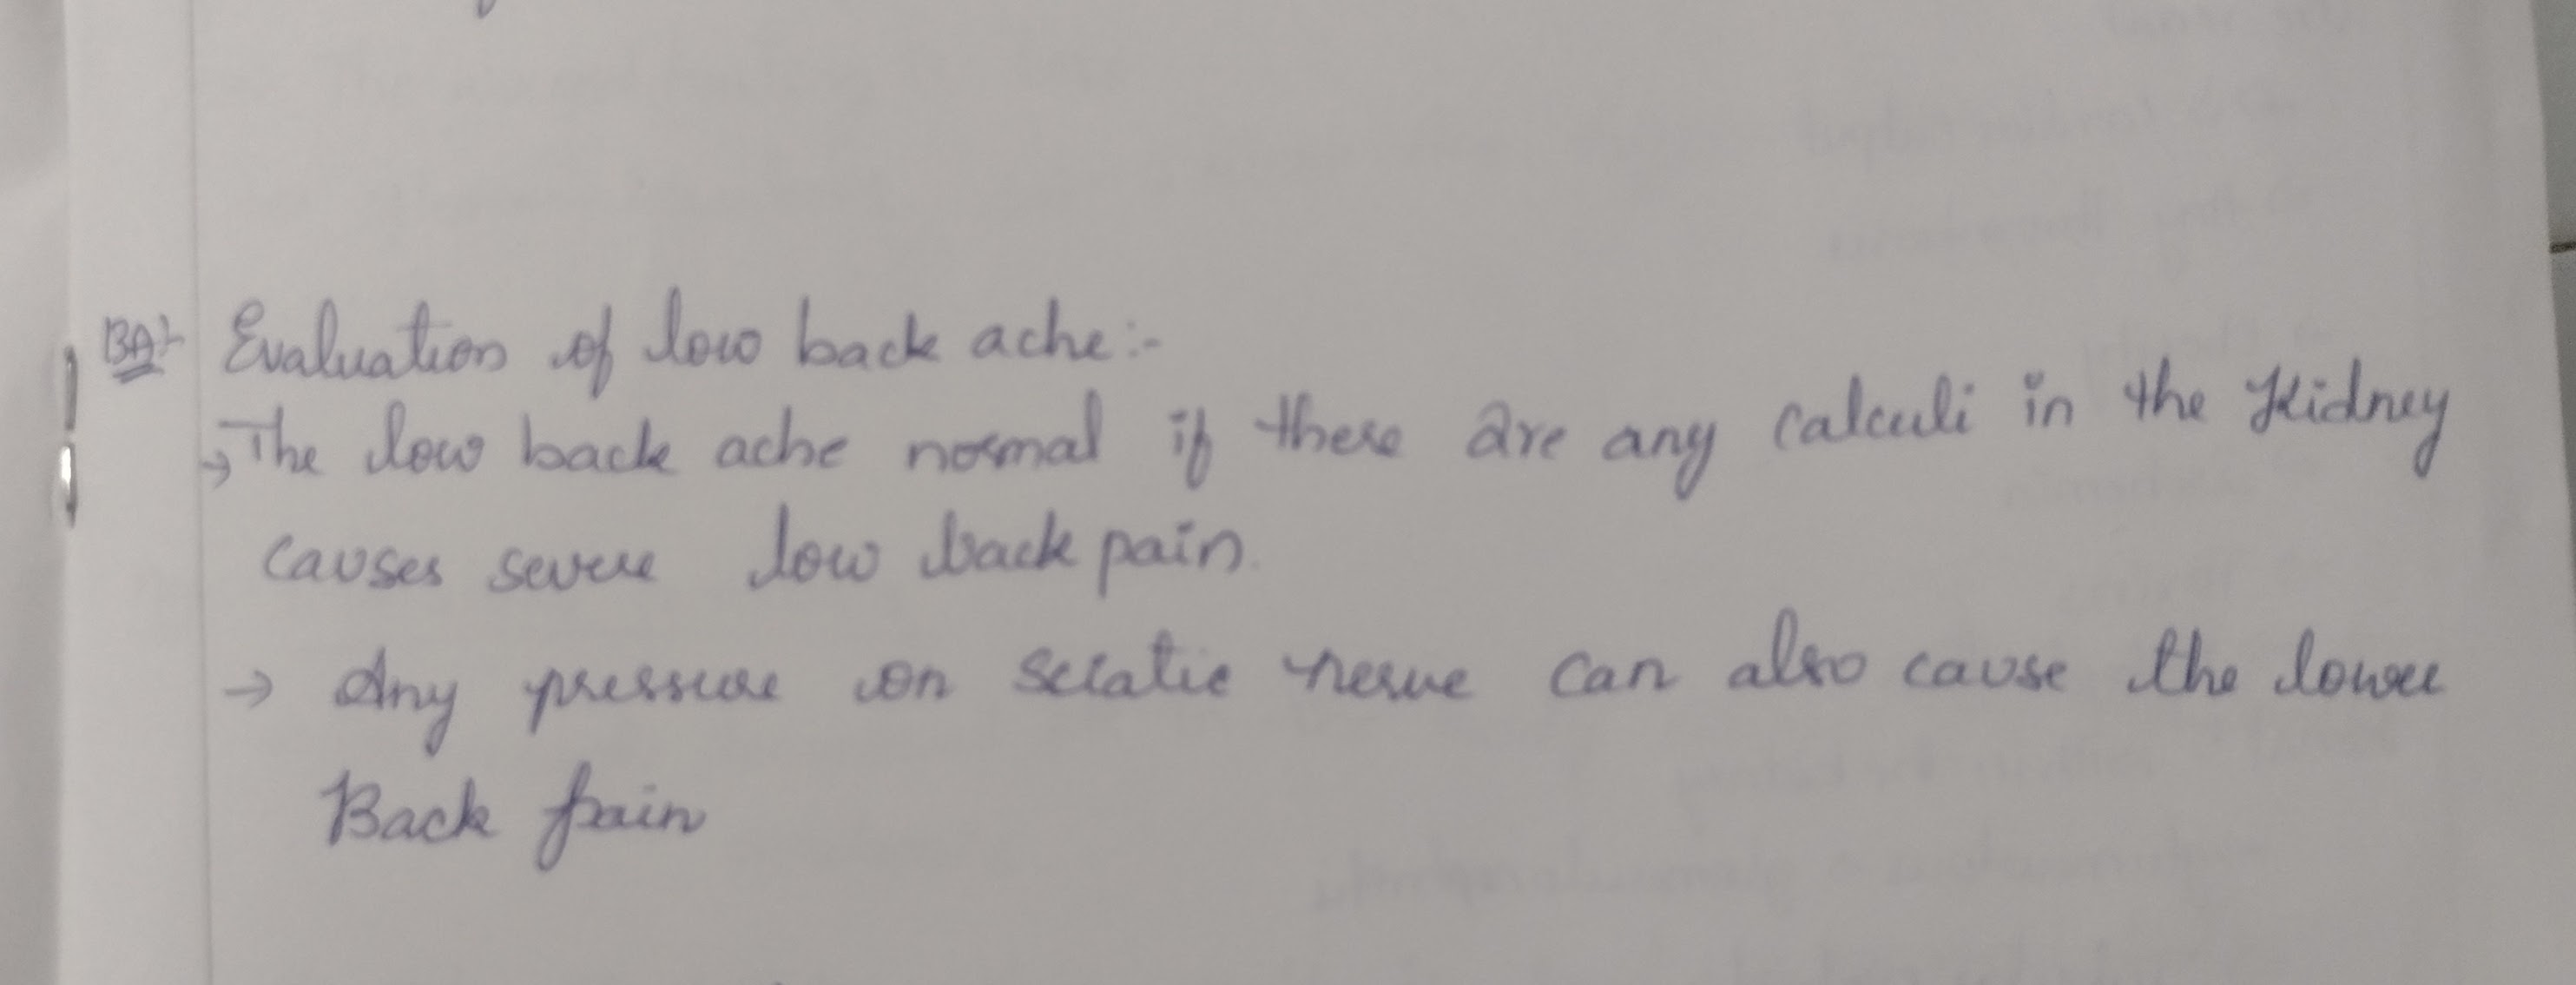 BA:- Evaluation of low back ache:-
→ The low back ache normal if there are any calculi in the Kidney
causes severe low back pain.
→ Any pressure on sciatic nerve can also cause the lower
Back pain